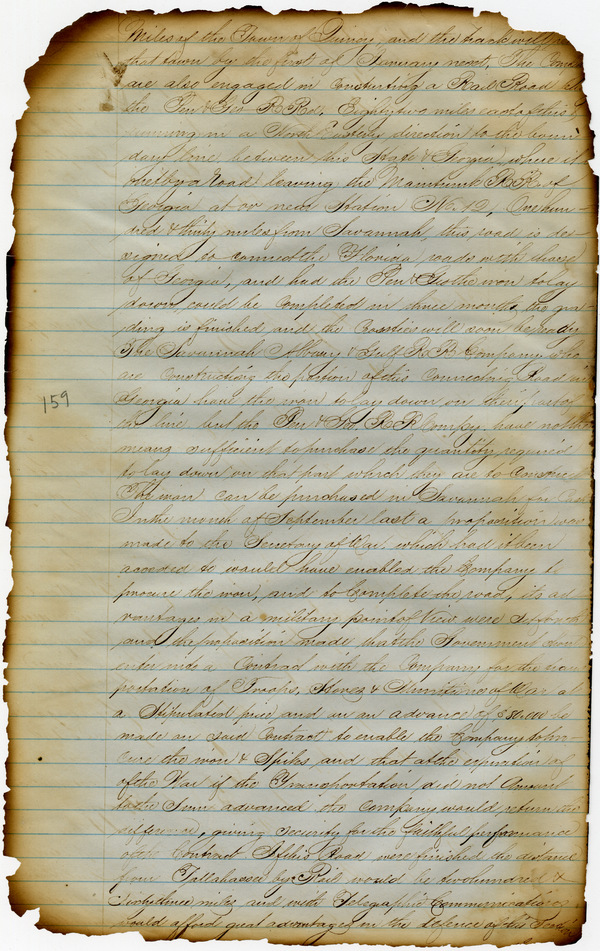 Miles of the Town of Quincy and the track will
that town by the first of January next, The Com
are also engaged in Constructing a Rail Road
the Pen & Geo R.Rd. Eighty two miles east of this
running in a North Easterly direction to the boun
dary line between this State & Georgia where it
a Road leaving the Maintrunk R.R. of
Georgia at or near Station No. 12, One hun-
dred & thirty miles from Savannah, this road is de-
signed to connect the Florida roads with those
of Georgia, and had the Pen & Geo the iron to lay
down, could be Completed in three months, the gra
ding is finished and the Crossties will soon be ready
The Savannah Albany & Gulf R.R. Company who
are Constructing the portion of this Connecting Road in
Georgia have the iron to lay down on their
line but the Pen & Geo. R.R Compy. have not the
means sufficient to purchase the quantity required
to lay down on that part which they are to Construct
The iron can be purchased in Savannah for Cash
159
In the month of September last a proposition was
made to the Secretary of War, which had it been
acceded to would have enabled the Company to
procure the iron, and to Complete the road, its ad
vantages in a military point of View were set forth
and the proposition made that the Government
enter into a Contract with the Company for the tran
portation of Troops, Stores & Munitions of War at
a Stipulated price and an advance of $ be
made on said Contract to enable the Company to pro-
cure the iron & Spikes, and that at the expiration of
of the War if the Transportation did not Amount
to the Sum advanced the Company would return the
difference, giving Security for the faithful performance
of the Contract If this Road were finished the distance
from Tallahassee by Rail would be two hundred &
miles and with Telegraphic Communication
would afford great advantages in the defence of this